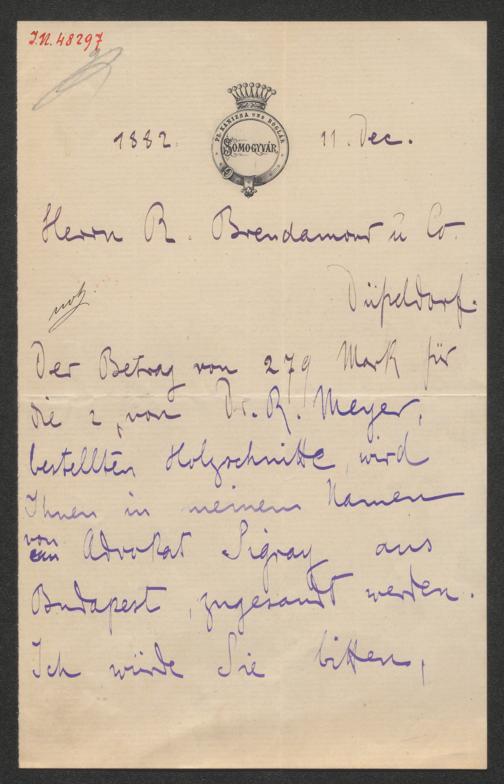 I.N. 48297
PR. KANIZSA UND BOGLÁR
SOMOGYVÁR
1882. 11. Dec.
Herrn R. Brendamour u Co.
Düßeldorf.
Der Betrag von 279 Mark für
die 2, von Dr. R. Meyer,
bestellten Holzschnitte, wird
Ihnen in meinem Namen
von
Advokat Sigray aus
Budapest, zugesandt werden.
Ich würde Sie bitten,